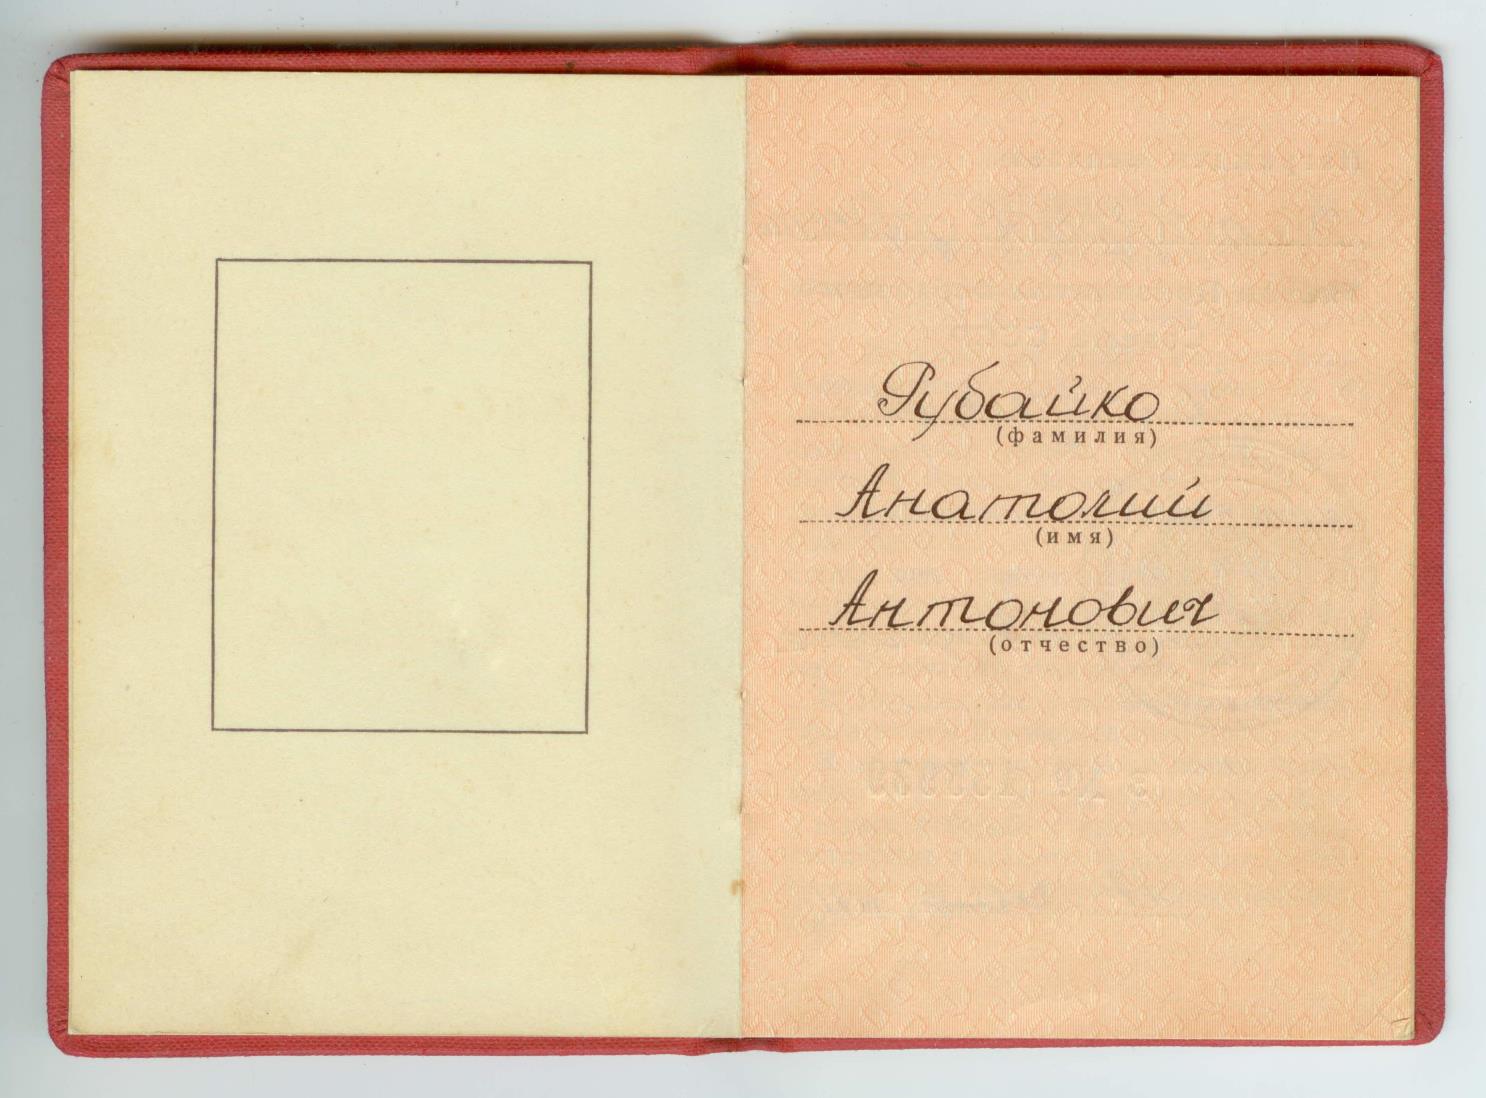 Рубайко
(фамилия)
Анатолий
(имя)
Антонович
(отчество)